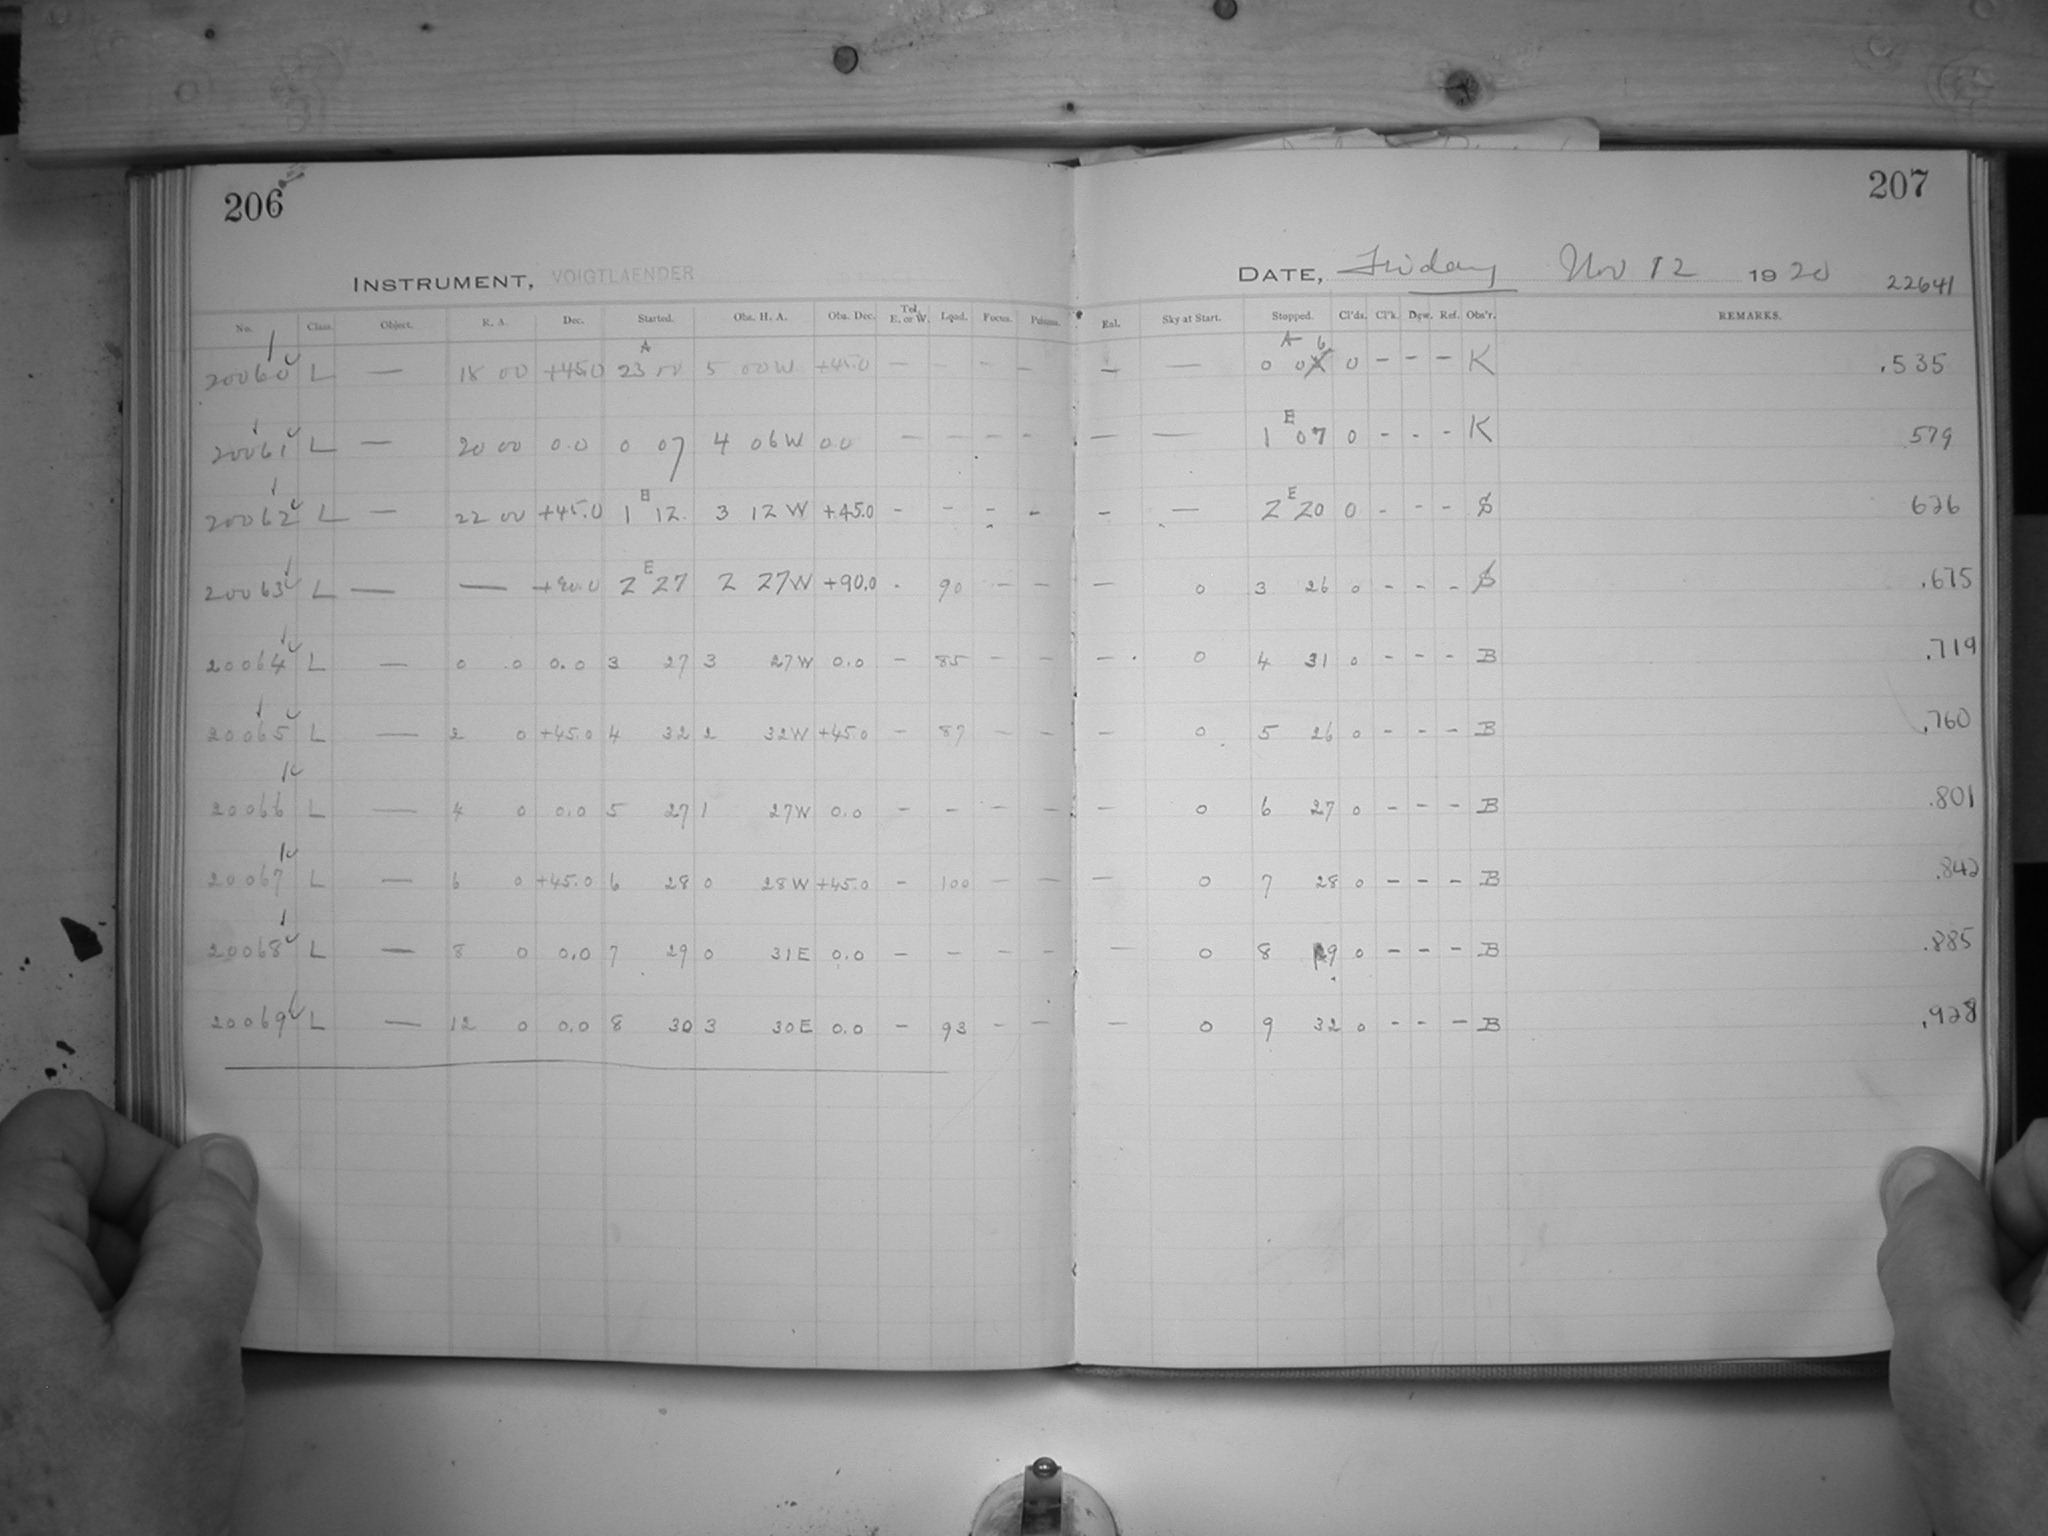 206
207
INSTRUMENT, VOIGTLAENDER
DATE, Friday Nov 12 1920 22641
No. Class. Object. R. A. Dec. Started. Obs. H. A. Obs. Dec. Tel. E. or W. Load. Focus. Prisms. Enl. Sky at Start. Stopped. Cl'ds. Cl'k. Dew. Ref. Obs'r. REMARKS.
20060 L — 18 00 +45.0 A 23 00 5 00W +45.0 — - - - — — A 0 06 0 - - - K .535
20061 L — 20 00 0.0 0 07 4 06W 0.0 — - - - — — 1 E 07 0 - - - K 579
20062 L — 22 00 +45.0 1 E 12 3 12W +45.0 - - - - - — 2 E 20 0 - - - S 626
20063 L — — +90.0 2 E 27 2 27W +90.0 - 90 - - — 0 3 26 0 - - - S .675
20064 L — 0 0 0.0 3 27 3 27W 0.0 - 85 - - - 0 4 31 0 - - - B .719
20065 L — 2 0 +45.0 4 32 2 32W +45.0 - 87 - - - 0 5 26 0 - - - B .760
20066 L — 4 0 0.0 5 27 1 27W 0.0 - - - - - 0 6 27 0 - - - B .801
20067 L — 6 0 +45.0 6 28 0 28W +45.0 - 100 - - — 0 7 28 0 - - - B .842
20068 L — 8 0 0.0 7 29 0 31E 0.0 - - - - — 0 8 29 0 - - - B .885
20069 L — 12 0 0.0 8 30 3 30E 0.0 - 93 - - — 0 9 32 0 - - - B .928